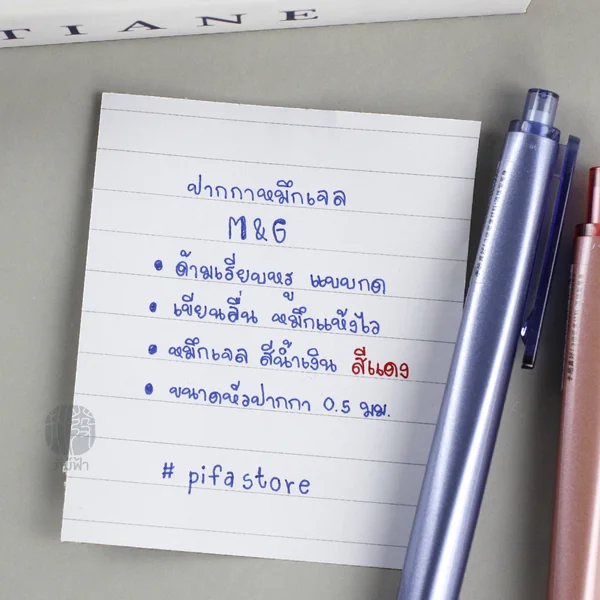 TIANE
ปากกาหมึกเจล
M&G
• ด้ามเรียบหรู แบบกด
• เขียนลื่น หมึกแห้งไว
• หมึกเจล สีน้ำเงิน สีแดง
• ขนาดหัวปากกา 0.5 มม.
# pifastore